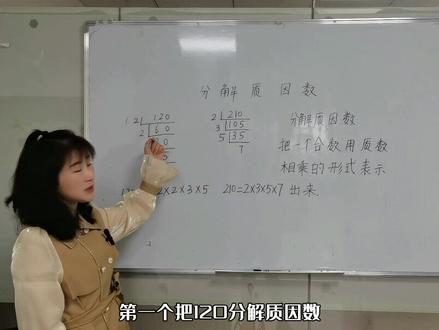 分解质因数
1. 2 120
2 60
0
2 210
3 105
5 35
7
分解质因数
把一个合数用质数
相乘的形式表示
出来.
2×2×3×5
210=2×3×5×7
第一个把120分解质因数